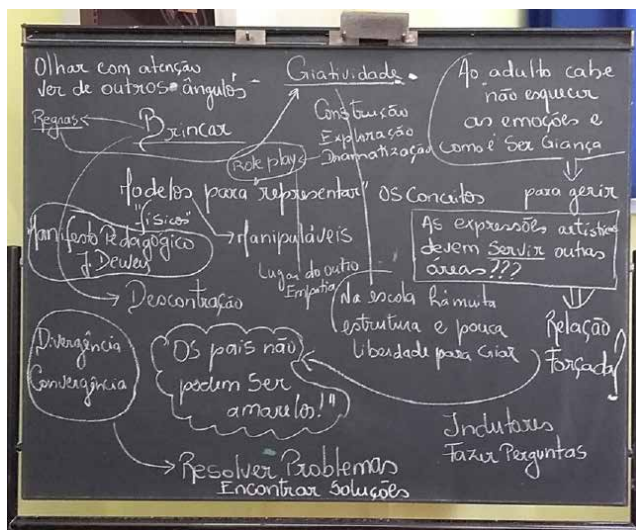 Olhar com atenção
ver de outros ângulos
Criatividade
Ao adulto cabe
não esquecer
as emoções e
como é ser Criança
Regras
Brincar
Construção
Exploração
Dramatização
Role play
Modelos para "representar" os conceitos
"físicos"
para gerir
Manifesto Pedagógico
J. Dewey
Manipuláveis
As expressões artísticas
devem servir outras
áreas???
Lugar do outro
Empatia
Descontração
Na escola há muita
estrutura e pouca
liberdade para Criar
Relação
Forçada!
Divergência
Convergência
"Os pais não
podem ser
amarelos!"
Indutores
Fazer Perguntas
Resolver Problemas
Encontrar Soluções